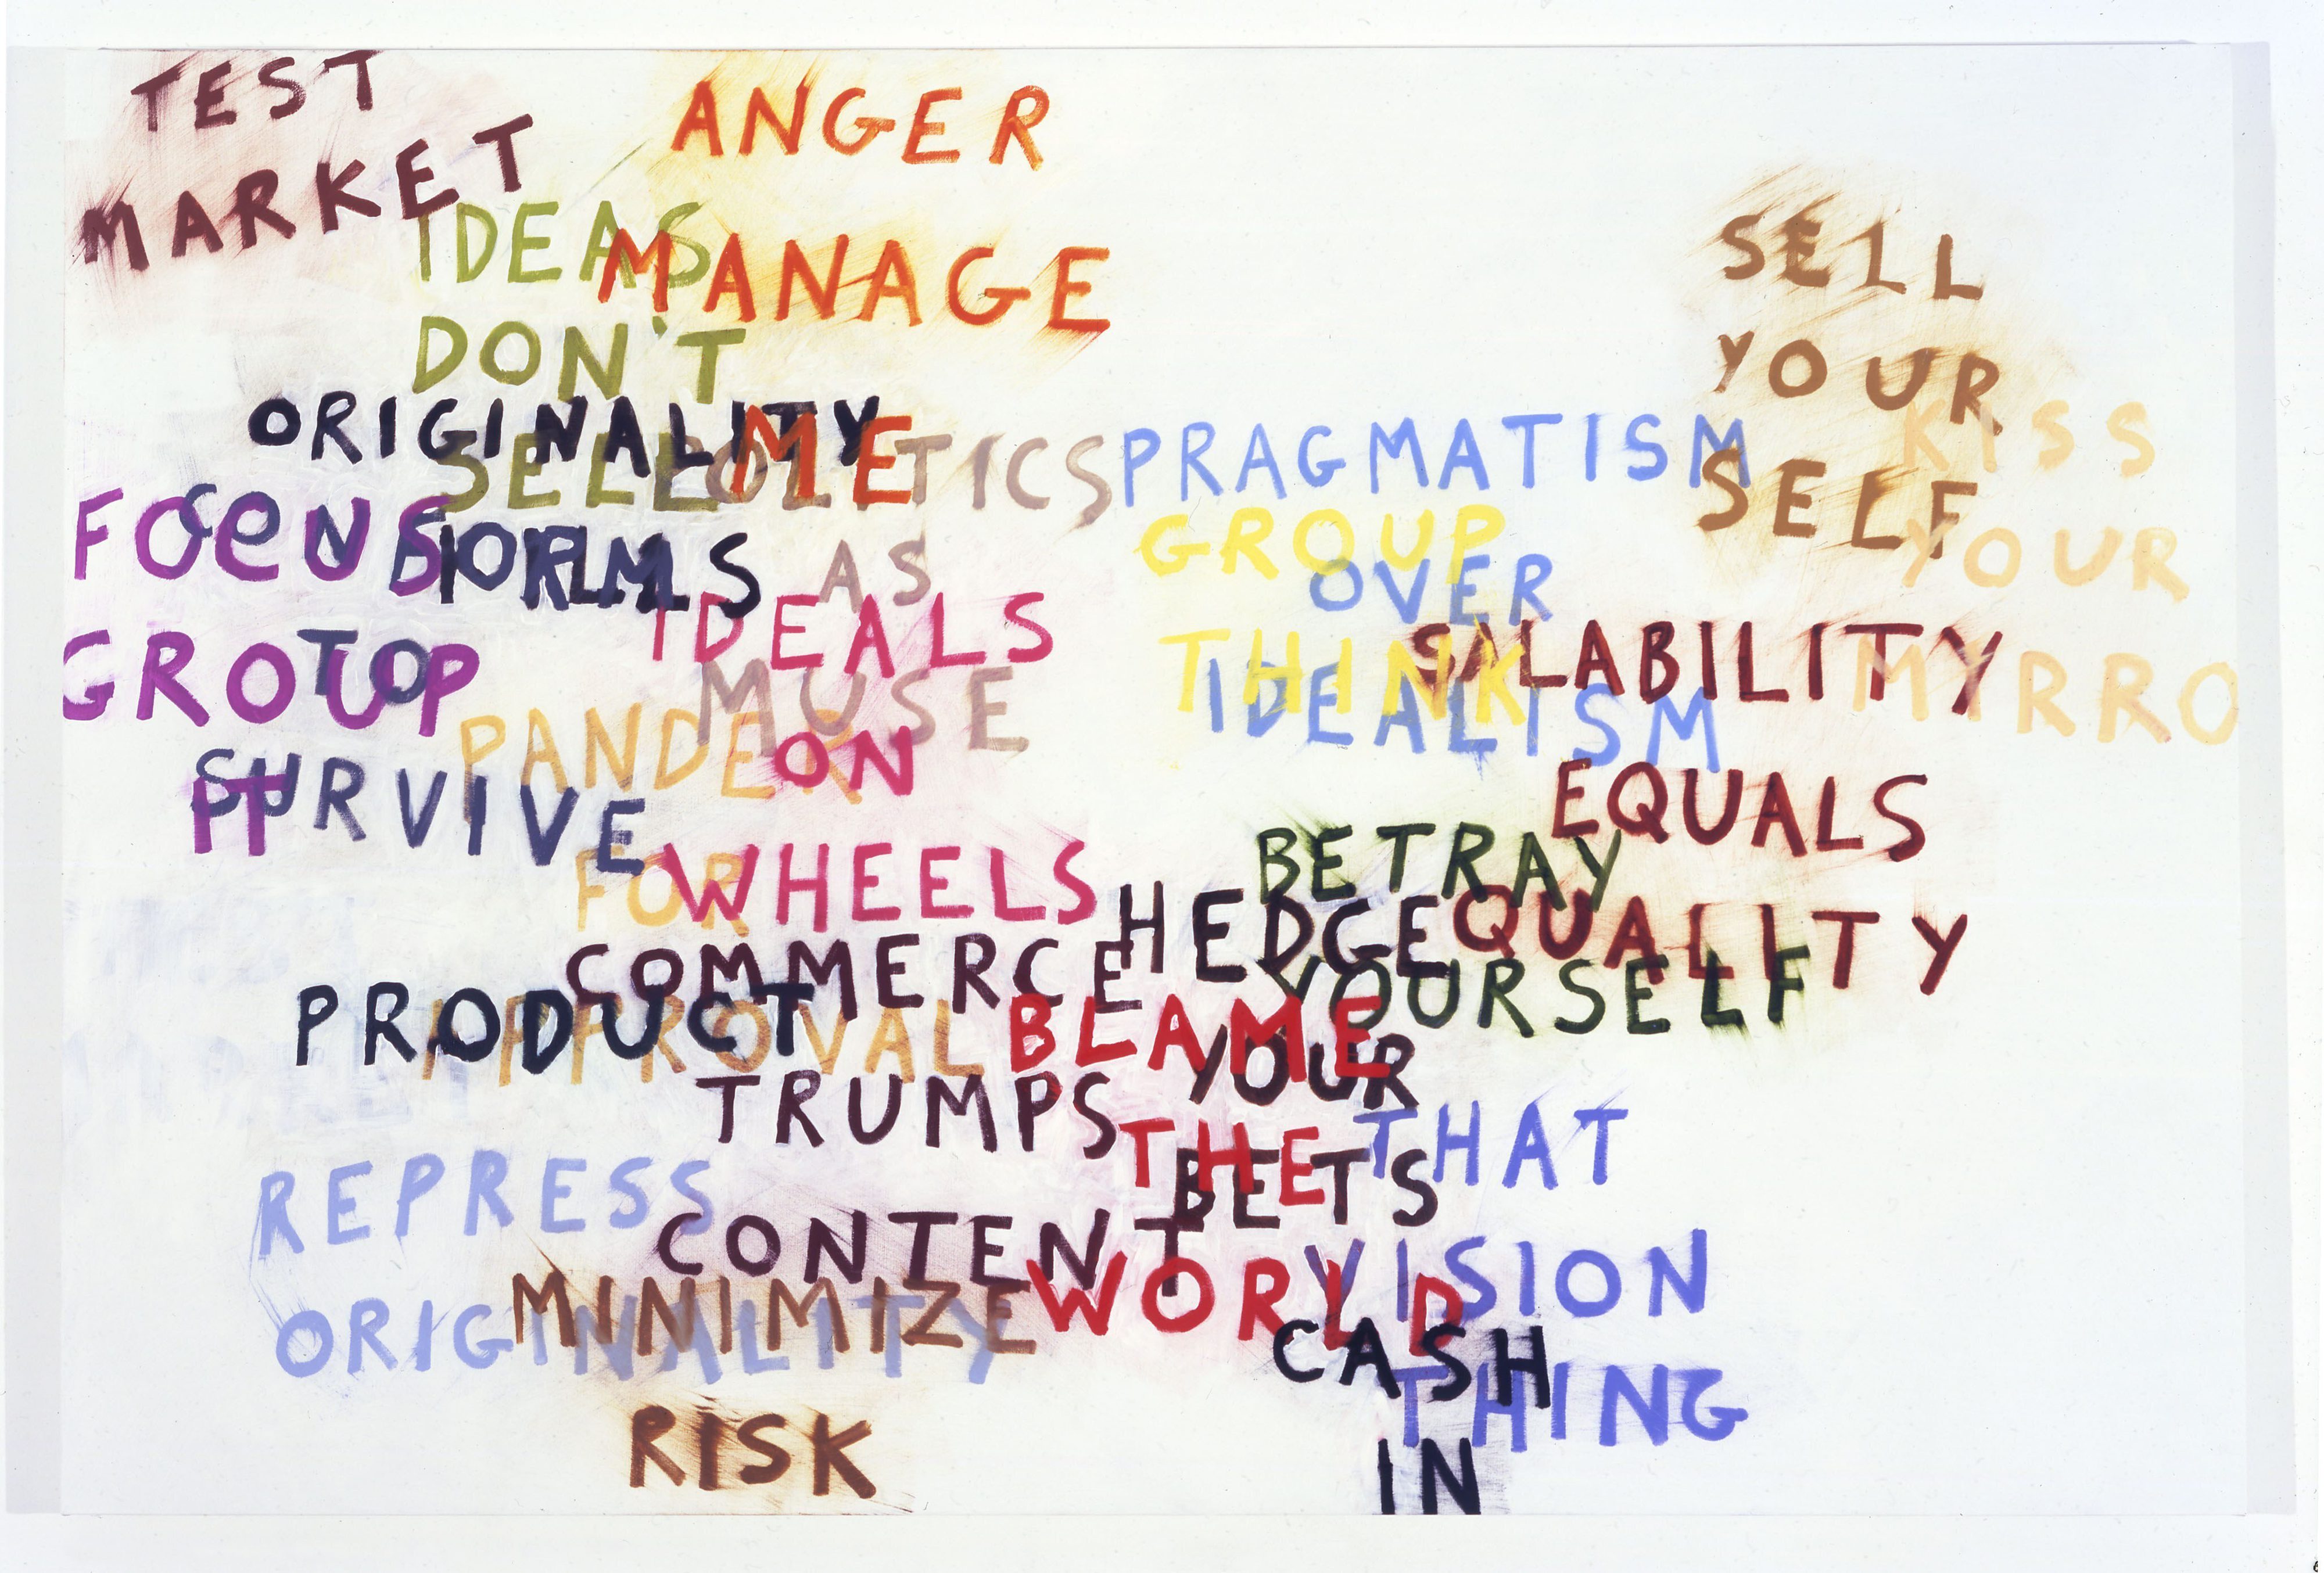 TEST
MARKET
ANGER
MANAGE
ME
IDEAS
DON'T
SELL
SELL
YOUR
SELF
KISS
YOUR
MYRRO
ORIGINALITY
POLITICS
AS
MUSE
PRAGMATISM
OVER
IDEALISM
GROUP
THINK
FOCUS
GROUP
IT
CON
FORM
TO
SURVIVE
IDEALS
ON
WHEELS
SALABILITY
EQUALS
QUALITY
PANDER
FOR
APPROVAL
BETRAY
YOURSELF
HEDGE
YOUR
BETS
COMMERCE
TRUMPS
CONTENT
PRODUCT
BLAME
THE
WORLD
THAT
VISION
THING
REPRESS
ORIGINALITY
MINIMIZE
RISK
CASH
IN